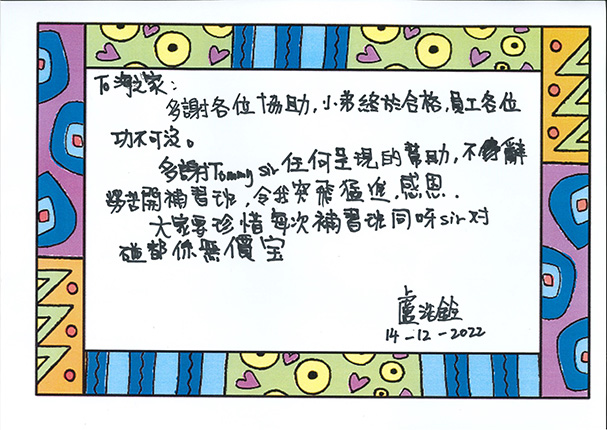 石海之家：
多謝各位協助，小弟終於合格，員工各位
功不可沒。
多謝Tommy sir任何呈現的幫助，不辭
勞苦開補習班，令我突飛猛進，感恩．
大家要珍惜每次補習班同呀sir对
碰都係無價宝
盧
14-12-2022